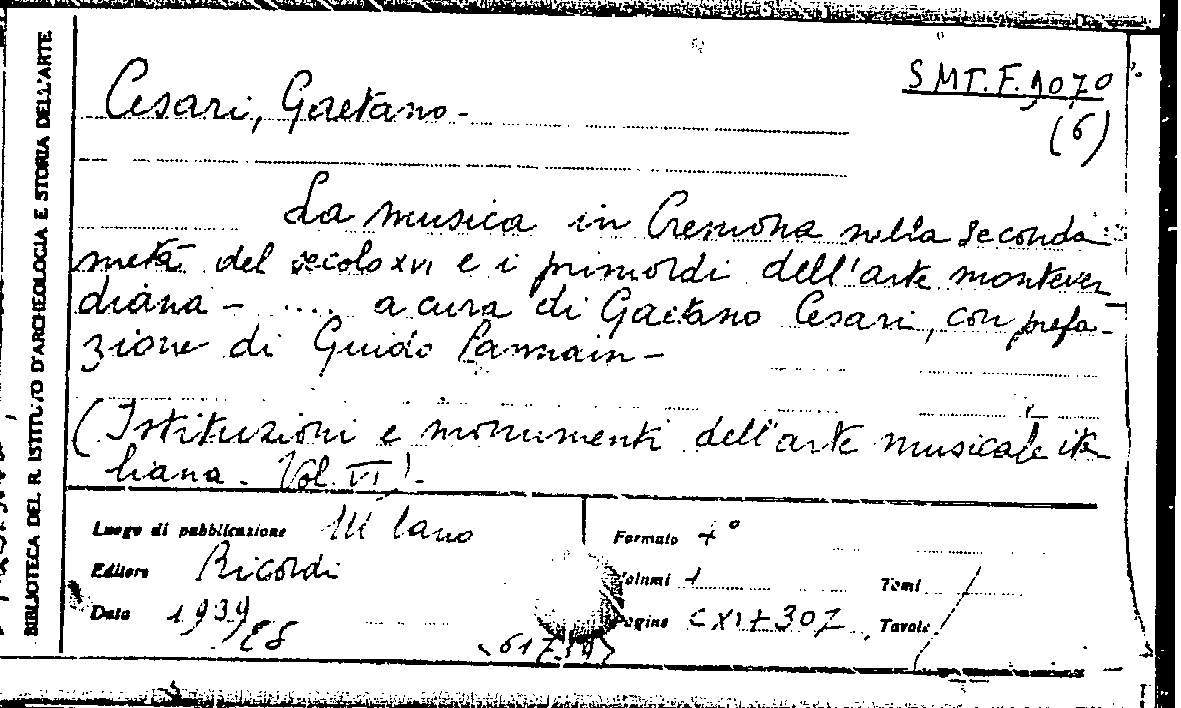 BIBLIOTECA DEL R. ISTITUTO D'ARCHEOLOGIA E STORIA DELL'ARTE
Cesari, Gaetano-
SMT.F.9070
(6)
La musica in Cremona nella seconda
metà del secolo XVI e i primordi dell'arte montever
diana - .... a cura di Gaetano Cesari, con prefa-
zione di Guido Pannain-
(Istituzioni e monumenti dell'arte musicale ita
liana. Vol. VI).
Luogo di pubblicazione Milano
Editore Ricordi
Data 1939
Formato 4°
Volumi 1 Tomi
Pagine CXI+307 Tavole